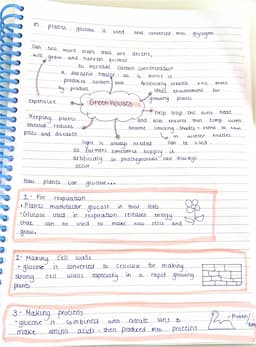 in plants glucose is used and converted into glycogen
Can sell more crops that are decent,
will grow and harvest quicker
to increase carbon concentration
a paraffin heater as it burns it
produces carbon
by-product
Artificially creates
ideal environment for
growing plants
expensive
Greenhouses
help trap the suns heat
and also ensures that temp wont
become limiting. Shades
can be used
in winter heaters
Keeping plants
enclosed reduces
pests and diseases
light is always needed
so farmers sometimes supply it
artificially so photosynthesis can always
occur.
how plants use glucose...
1: For respiration
• Plants manufactor glucose in their leafs
• Glucose used in respiration releases energy
that can be used to make new cells and
grow.
2: Making Cell walls
• glucose is converted to cellulose for making
strong cell walls especially in a rapid growing
plants
3 - Making proteins
• glucose is combined with nitrate ions to
make amino acids - then produced into proteins
Protein